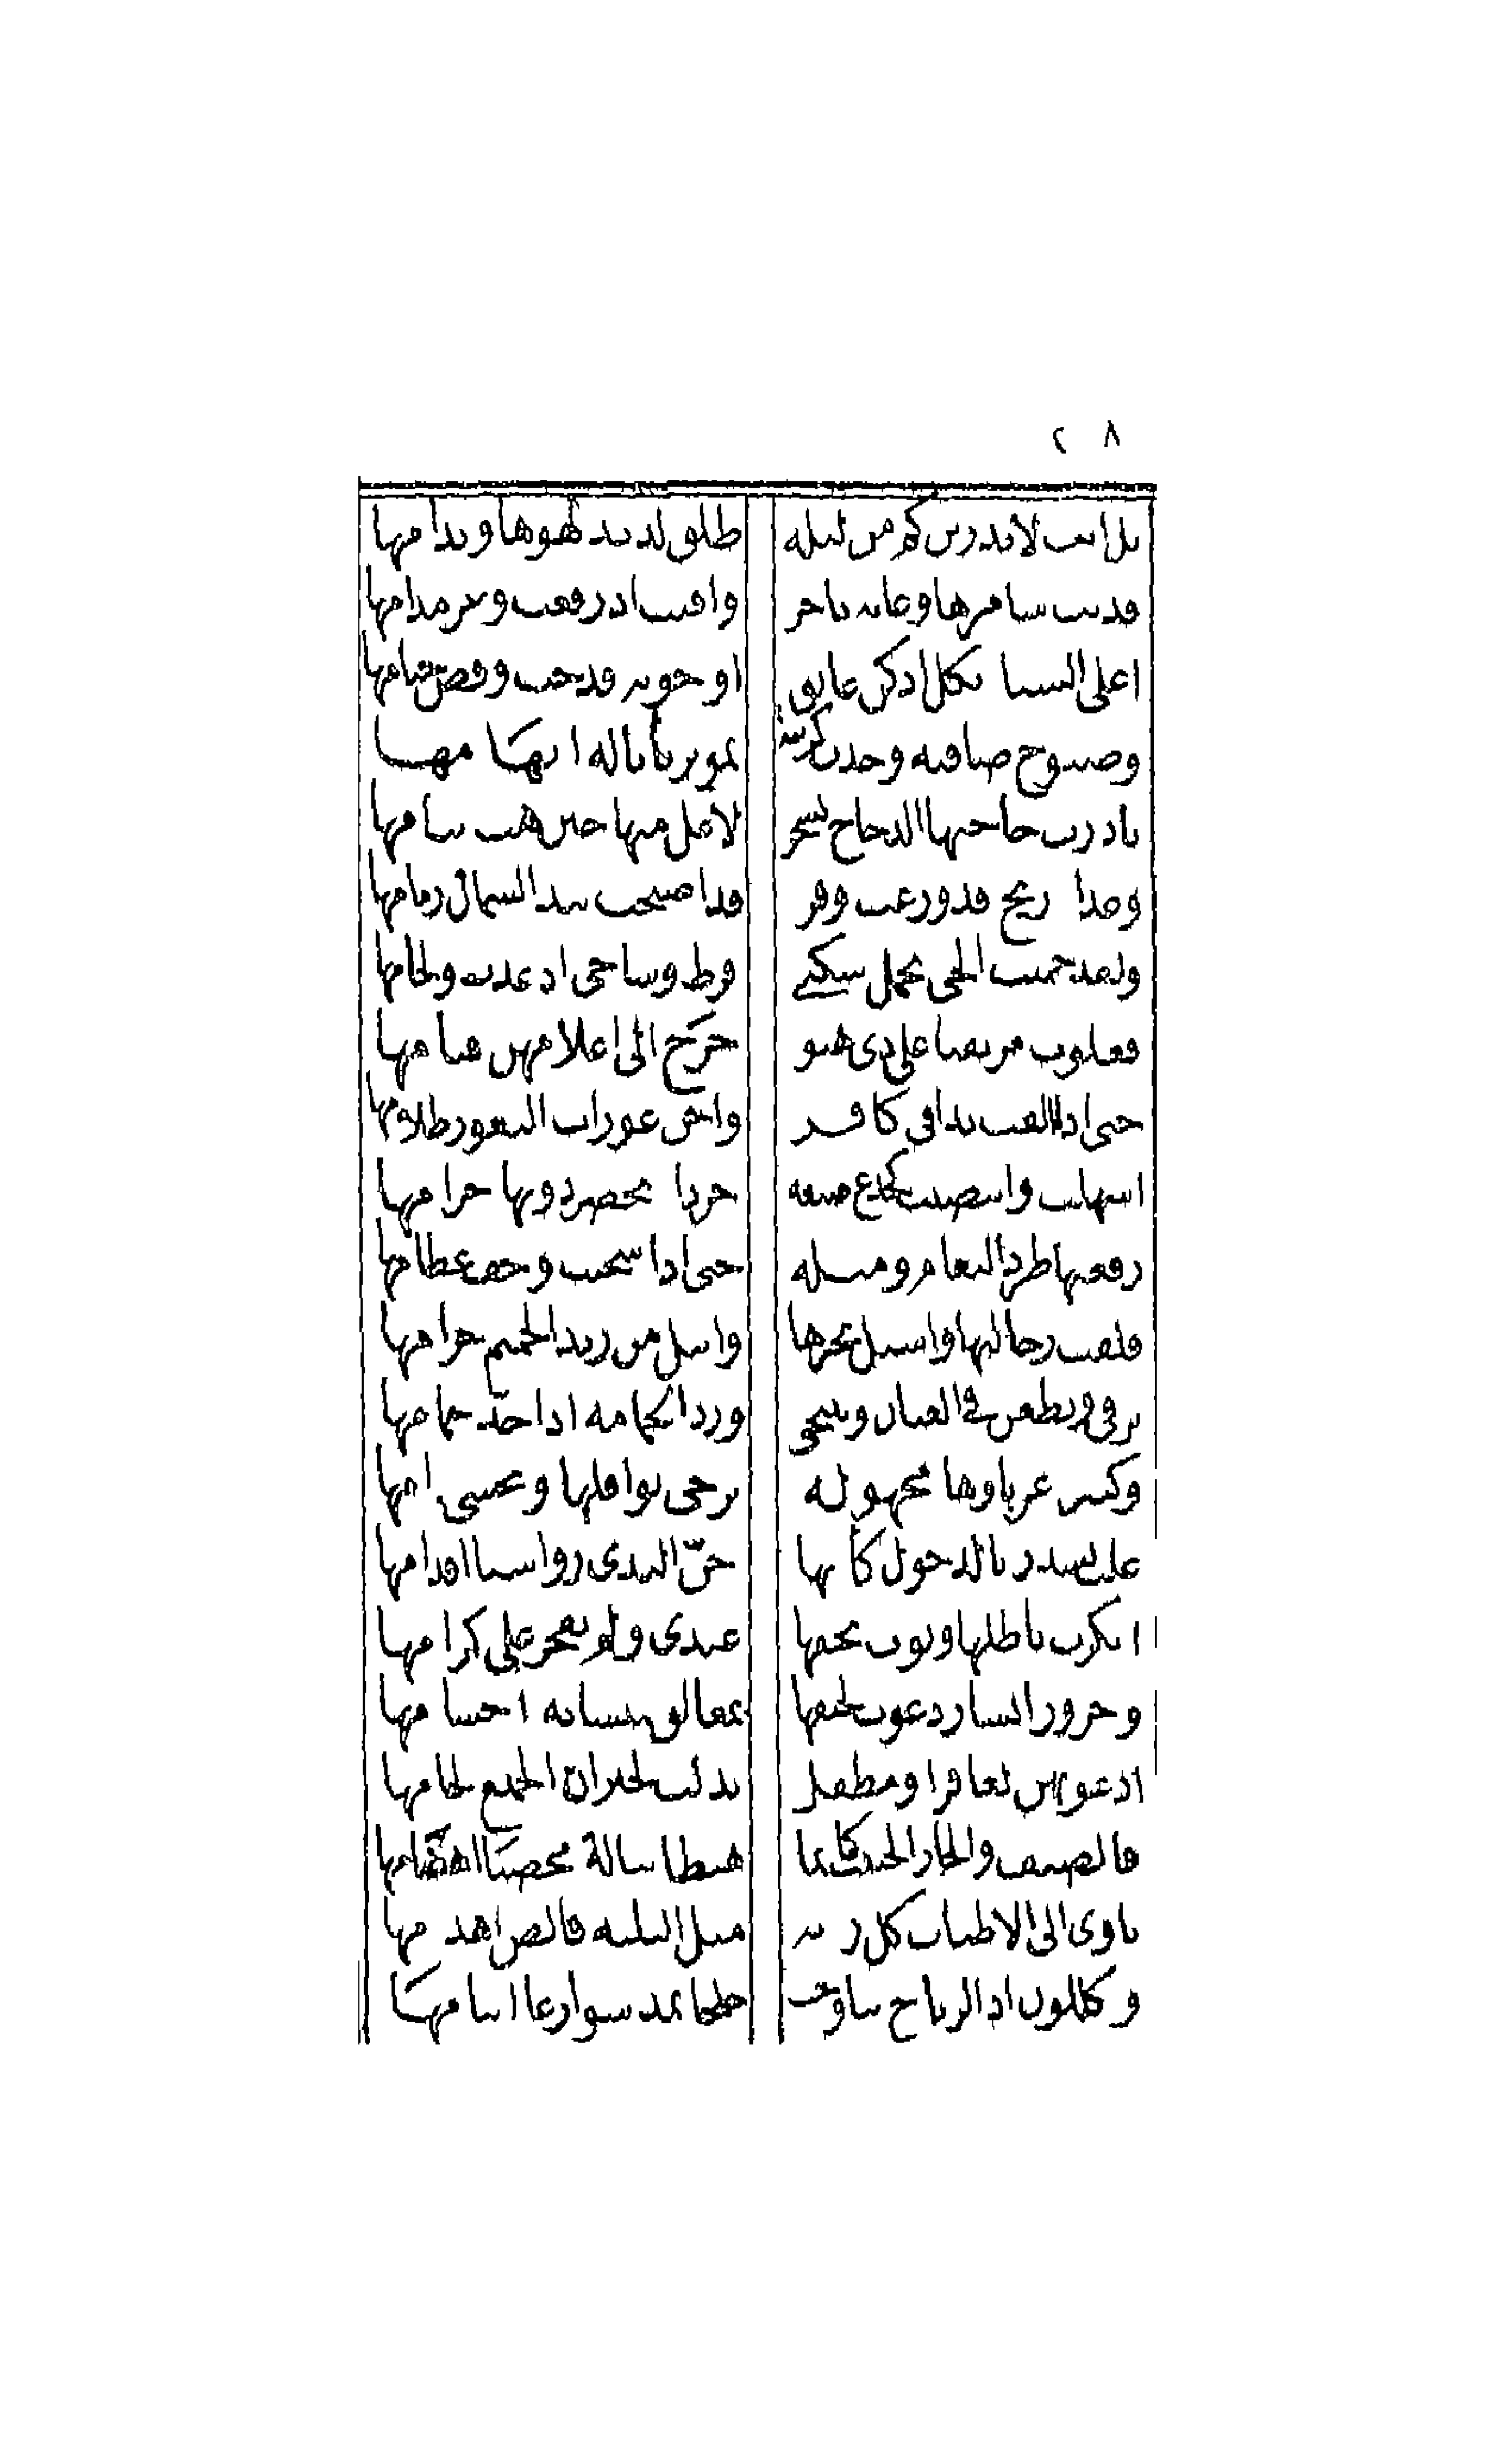 ٢ ٨
بل انت لا تدرين كم من ليله طلق لذيذ لهوها وندامها
قد بت سامرها وغايه تاجر وافيت اذ رفعت وعز مدامها
اغلى السبا بكل ادكن عاتق او جونه قدحت وفض ختامها
وصبوح صافيه وجذب كرينه بموتر تاتاله ابهامها
بادرت حاجتها الدجاج بسحره لاعل منها حين هب نيامها
وغداه ريح قد وزعت وقره قد اصبحت بيد الشمال زمامها
ولقد حميت الحي تحمل شكتي فرط وشاحي اذ غدوت ولجامها
فعلوت مرتقبا على ذي هبوه حرج الى اعلامهن قتامها
حتى اذا القت يدا في كافر واجن عورات الثغور ظلامها
اسهلت وانتصبت كجذع منيفه جردا يحصر دونها جرامها
رفعتها طرد النعام ومثله حتى اذا سخنت وخف عظامها
قلقت رحالتها واسبل نحرها وابتل من زبد الحميم حزامها
ترقى وتطعن في العنان وتنتحي ورد الحمامه اذا جد حمامها
وكثيره غرباوها مجهوله ترجى نوافلها ويخشى ذامها
غلب تشذر بالذحول كانها جن البدي رواسيا اقدامها
انكرت باطلها وبوت بحقها عندي ولم يفخر علي كرامها
وجزور ايسار دعوت لحتفها بمغالق متشابه اجسامها
ادعو بهن لعاقر او مطفل بذلت لجيران الجميع لحامها
فالضيف والجار الجنيب كانما هبطا تبالة مخصبا اهضامها
تاوى الى الاطناب كل رذيه مثل البليه قالص اهدامها
ويكللون اذا الرياح تناوحت خلجا تمد شوارعا ايتامها